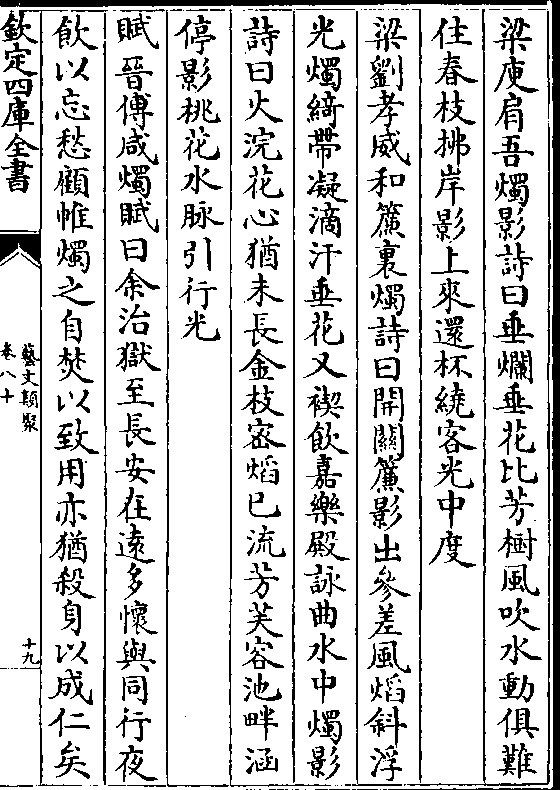 梁庾肩吾燭影詩曰垂爛垂花比芳樹風吹水動俱難
住春枝拂岸影上來還杯繞客光中度
梁劉孝威和簾裏燭詩曰開關簾影出參差風熖斜浮
光燭綺帶凝滴汗垂花又禊飲嘉樂殿詠曲水中燭影
詩曰火浣花心猶未長金枝密熖已流芳芙容池畔涵
停影桃花水脉引行光
賦晉傅咸燭賦曰余治獄至長安在遠多懷與同行夜
飲以忘愁顧帷燭之自焚以致用亦猶殺身以成仁矣
欽定四庫全書
藝文類聚
卷八十
十九